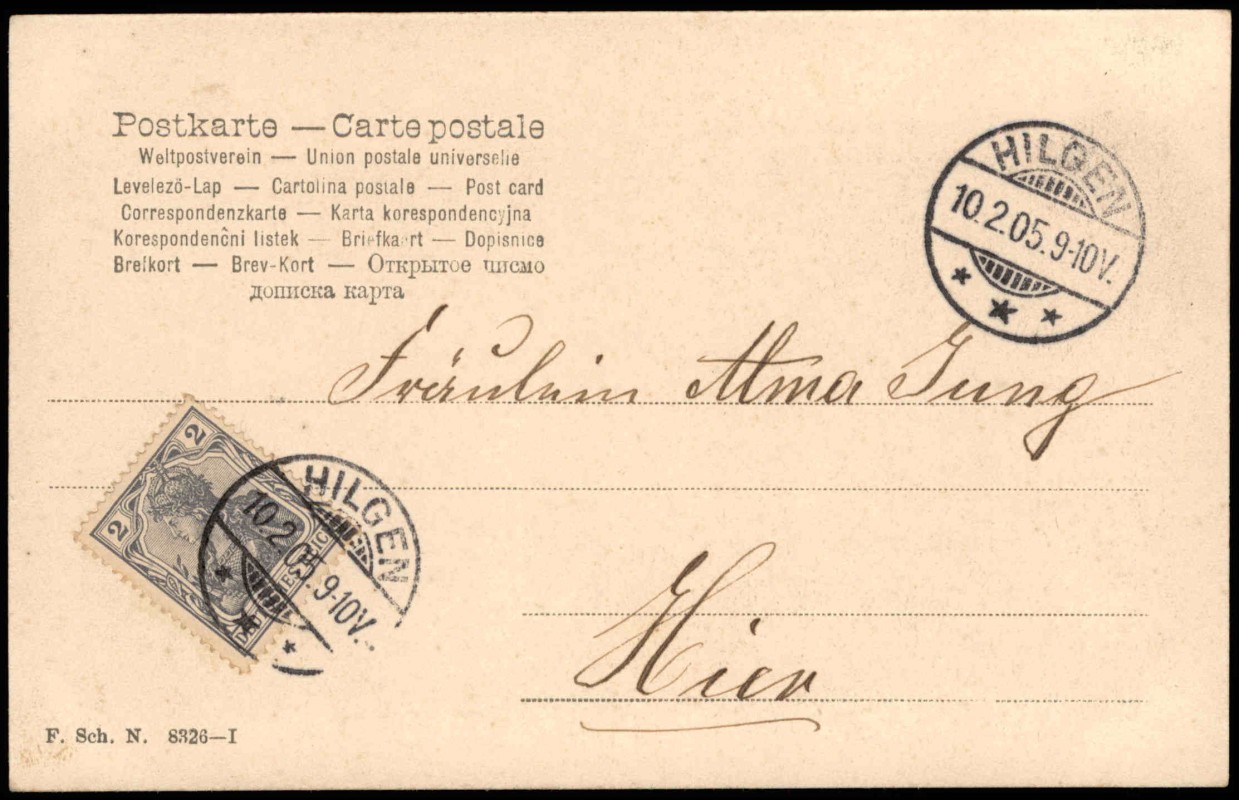 Postkarte — Carte postale
Weltpostverein — Union postale universelle
Levelezö-Lap — Cartolina postale — Post card
Correspondenzkarte — Karta korespondencyjna
Korespondenčni listek — Briefkaart — Dopisnice
Brefkort — Brev-Kort — Открытое письмо
дописка карта
HILGEN
10.2.05.9-10V.
Fräulein Alma Jung
2
2
HILGEN
10.2.05.9-10V.
Hier
F. Sch. N. 8326—I